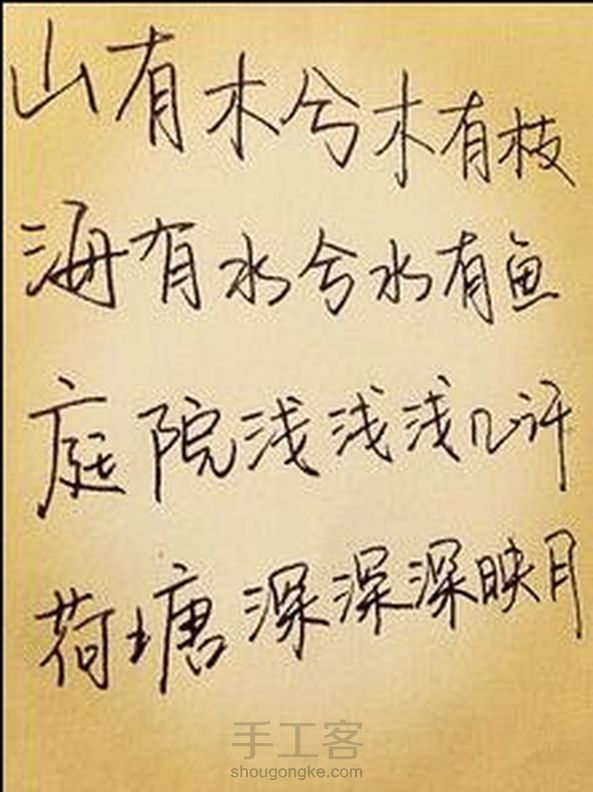 山有木兮木有枝
海有水兮水有鱼
庭院浅浅浅几许
荷塘深深深映月
手工客
shougongke.com